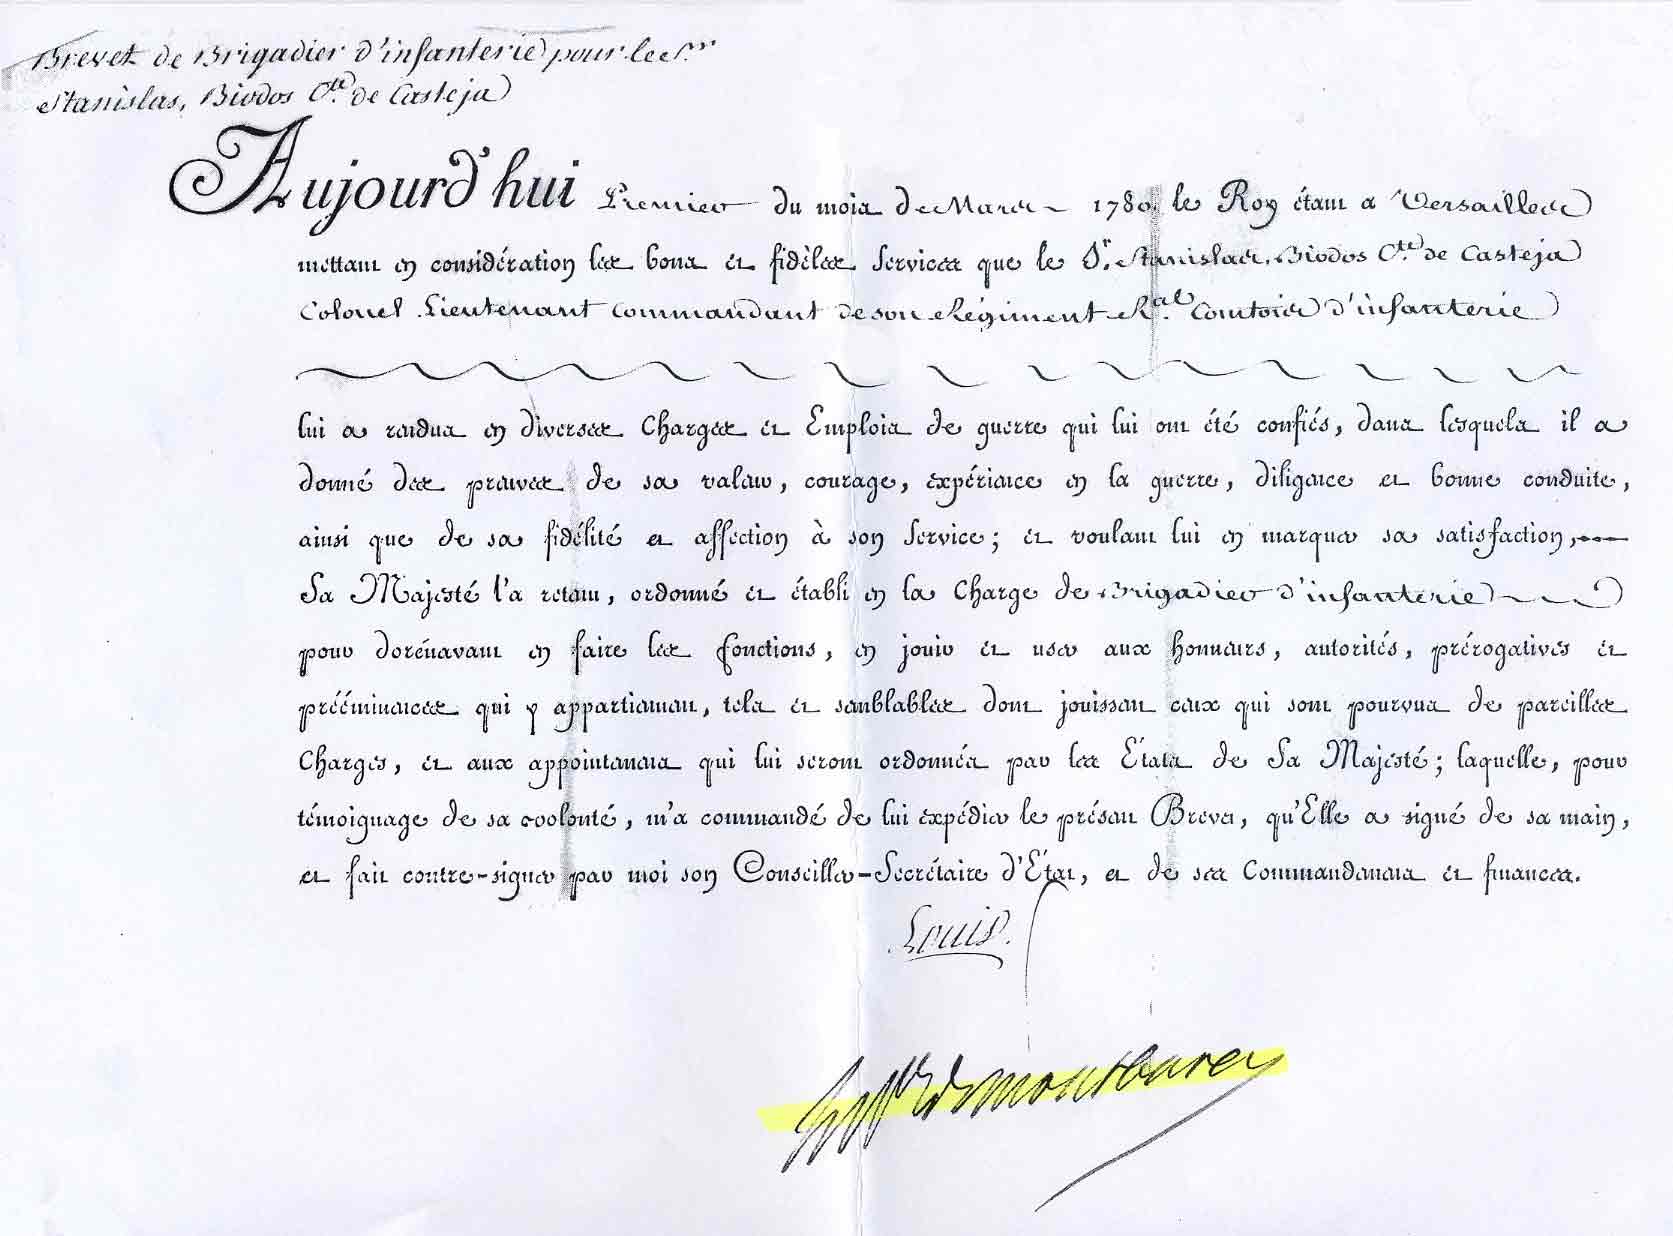 Brevet de Brigadier d'infanterie pour le Sr.
Stanislas, Biodos Cte. de Casteja
Aujourd'hui Premier du mois de Mars 1780. le Roy étant a Versailles
mettant en considération les bons et fidèles Services que le Sr. Stanislas, Biodos Cte. de Casteja
Colonel Lieutenant commandant de son Régiment Ral. Comtois d'infanterie
lui a rendus en diverses Charges et Emplois de guerre qui lui ont été confiés, dans lesquels il a
donné des preuves de sa valeur, courage, expérience en la guerre, diligence et bonne conduite,
ainsi que de sa fidélité et affection à son Service; et voulant lui en marquer sa satisfaction,
Sa Majesté l'a retenu, ordonné et établi en la Charge de Brigadier d'infanterie
pour dorénavant en faire les fonctions, en jouir et user aux honneurs, autorités, prérogatives et
prééminences qui y appartiennent, tels et semblables dont jouissent ceux qui sont pourvus de pareilles
Charges, et aux appointements qui lui seront ordonnés par les États de Sa Majesté; laquelle, pour
témoignage de sa volonté, m'a commandé de lui expédier le présent Brevet, qu'Elle a signé de sa main,
et fait contre-signer par moi son Conseiller-Secrétaire d'État, et de ses Commandements et finances.
Louis.
de montbarey